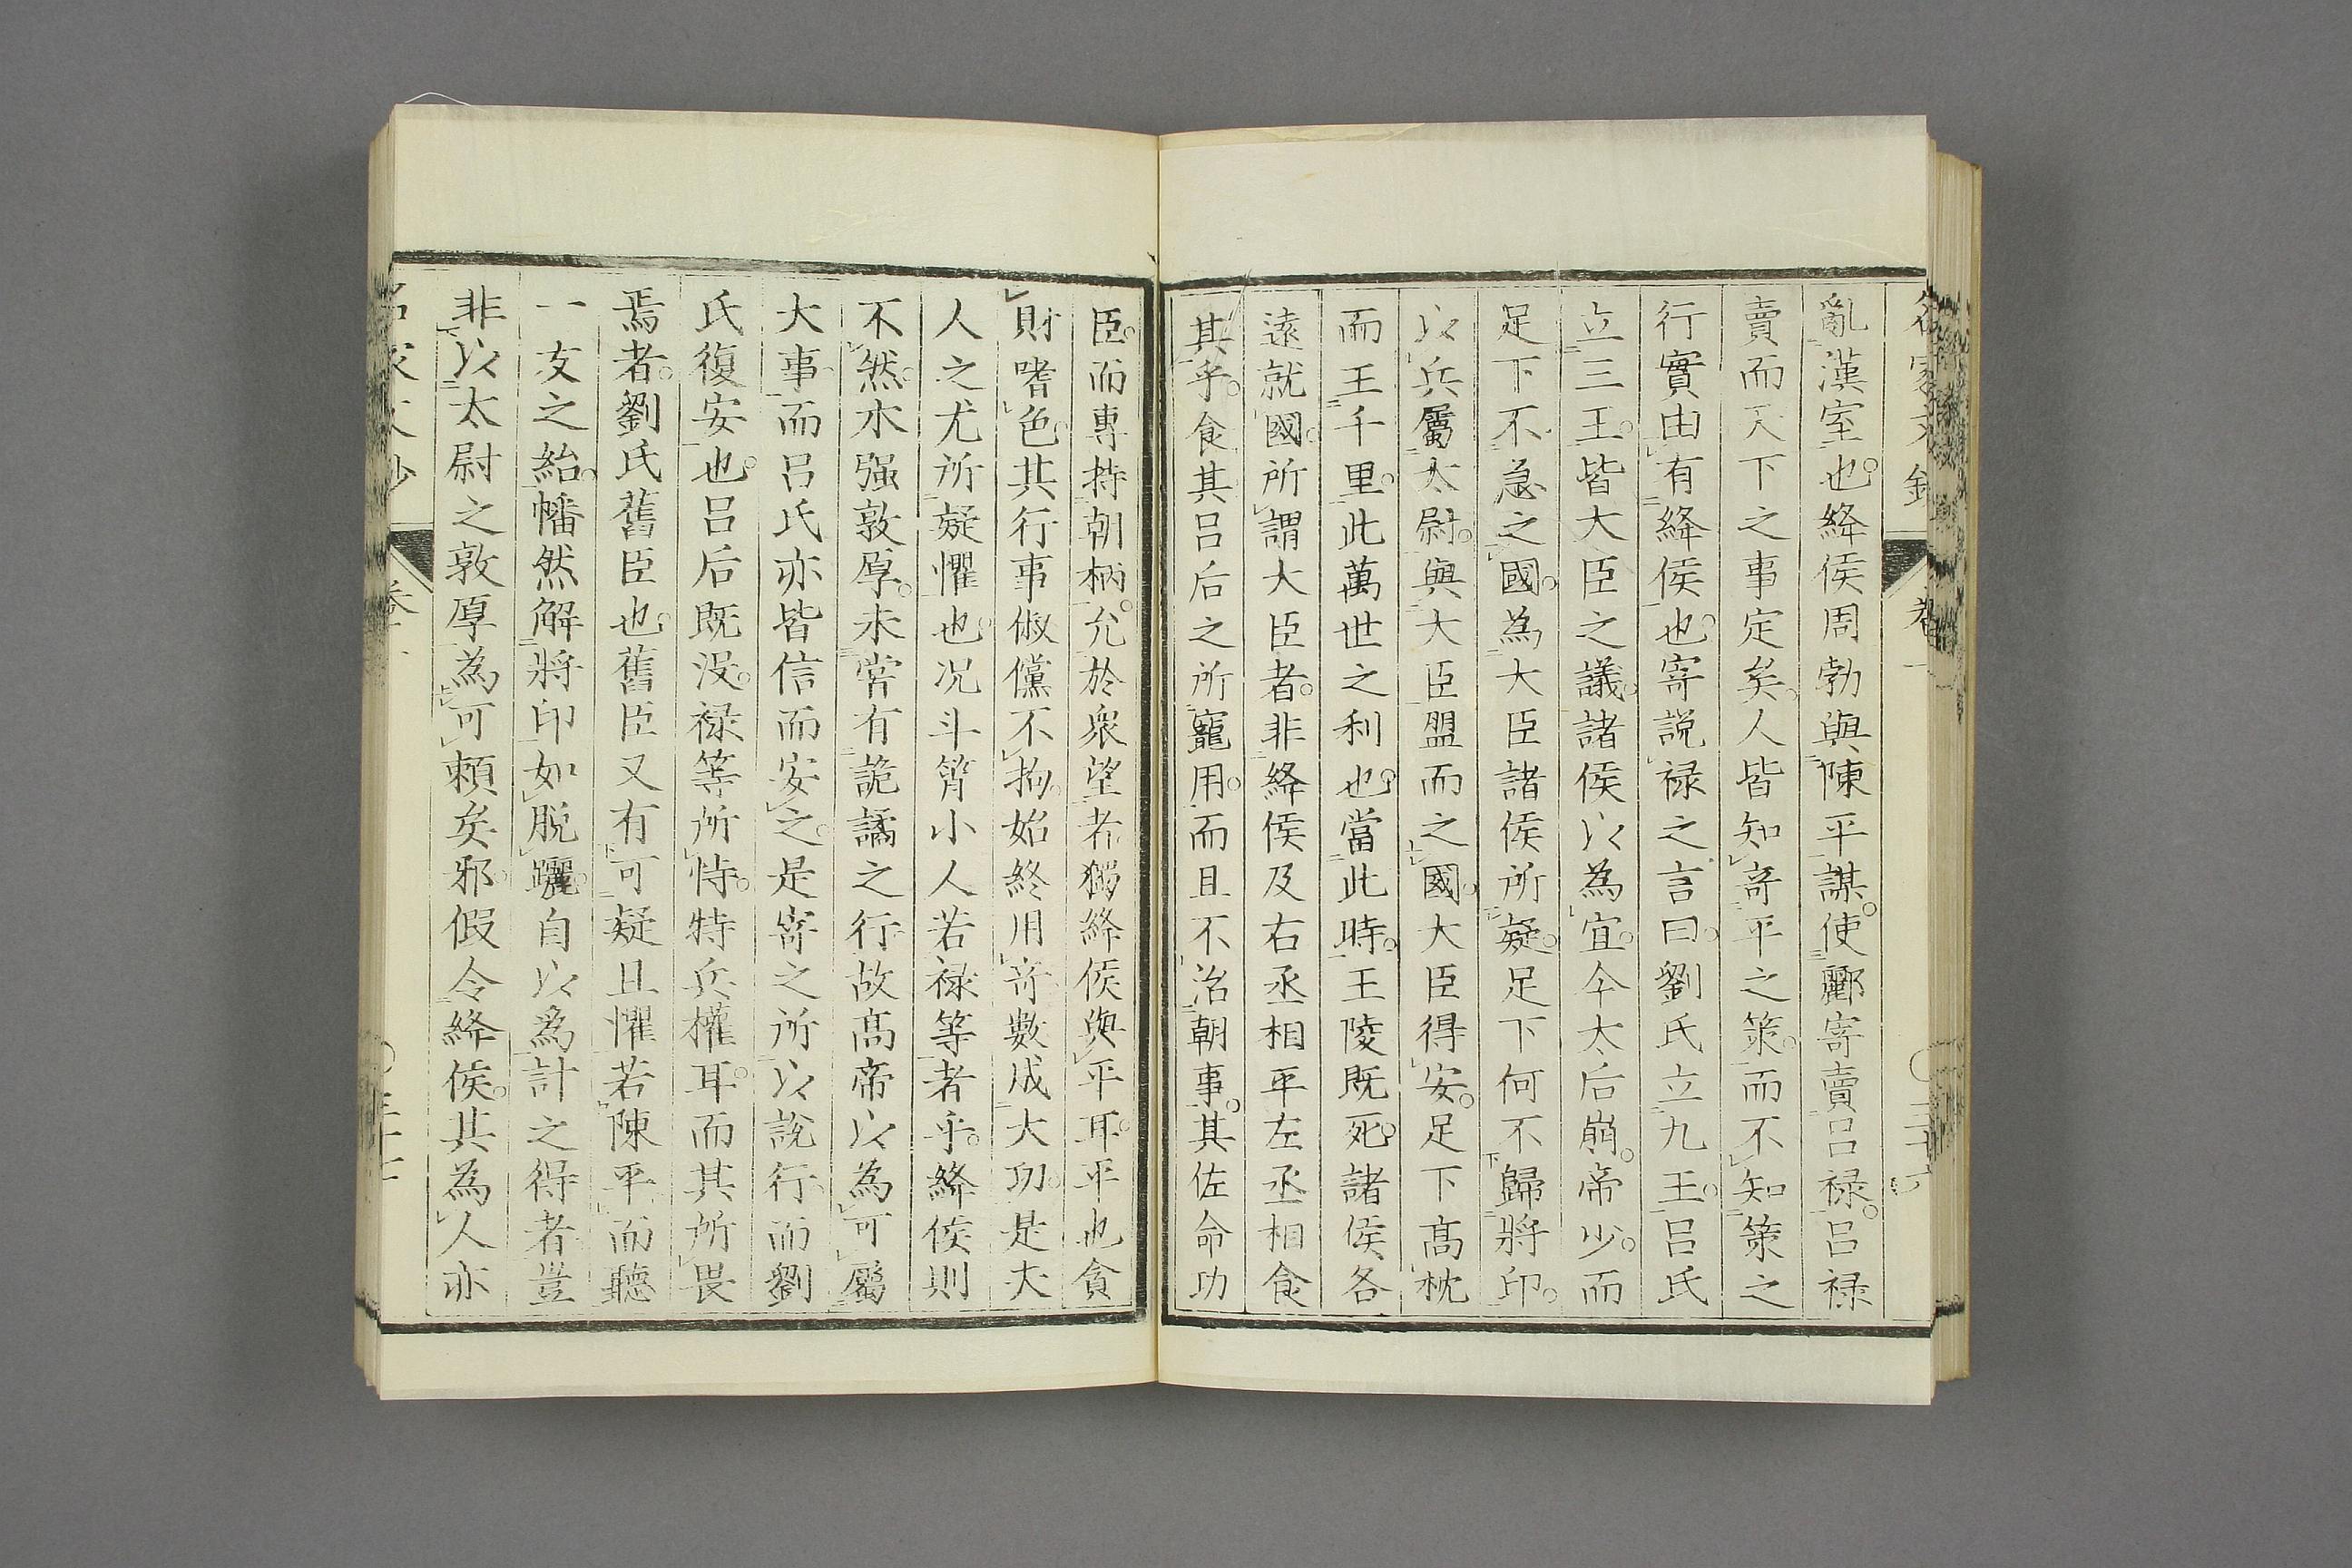 名家文鈔 卷一 〇三十六
亂漢室也。絳侯周勃與陳平謀。使酈寄賣呂祿。呂祿
賣而天下之事定矣。人皆知寄平之策。而不知策之
行實由有絳侯也。寄說祿之言曰。劉氏立九王。呂氏
立三王。皆大臣之議。諸侯以為宜。今太后崩。帝少。而
足下不急之國。為大臣諸侯所疑。足下何不歸將印。
以兵屬太尉。與大臣盟而之國。大臣得安。足下高枕
而王千里。此萬世之利也。當此時。王陵既死。諸侯各
遠就國。所謂大臣者。非絳侯及右丞相平左丞相食
其乎。食其呂后之所寵用。而且不治朝事。其佐命功
臣。而專持朝柄。允於衆望者。獨絳侯與平耳。平也貪
財嗜色。其行事俶儻不拘。始終用奇數成大功。是夫
人之尤所疑懼也。況斗筲小人若祿等者乎。絳侯則
不然。木强敦厚。未嘗有詭譎之行。故高帝以為可屬
大事。而呂氏亦皆信而安之。是寄之所以說行。而劉
氏復安也。呂后既沒。祿等所恃。特兵權耳。而其所畏
焉者。劉氏舊臣也。舊臣又有可疑且懼若陳平。而聽
一友之紿。幡然解將印如脫躧。自以為計之得者。豈
非以太尉之敦厚為可賴矣邪。假令絳侯。其為人亦